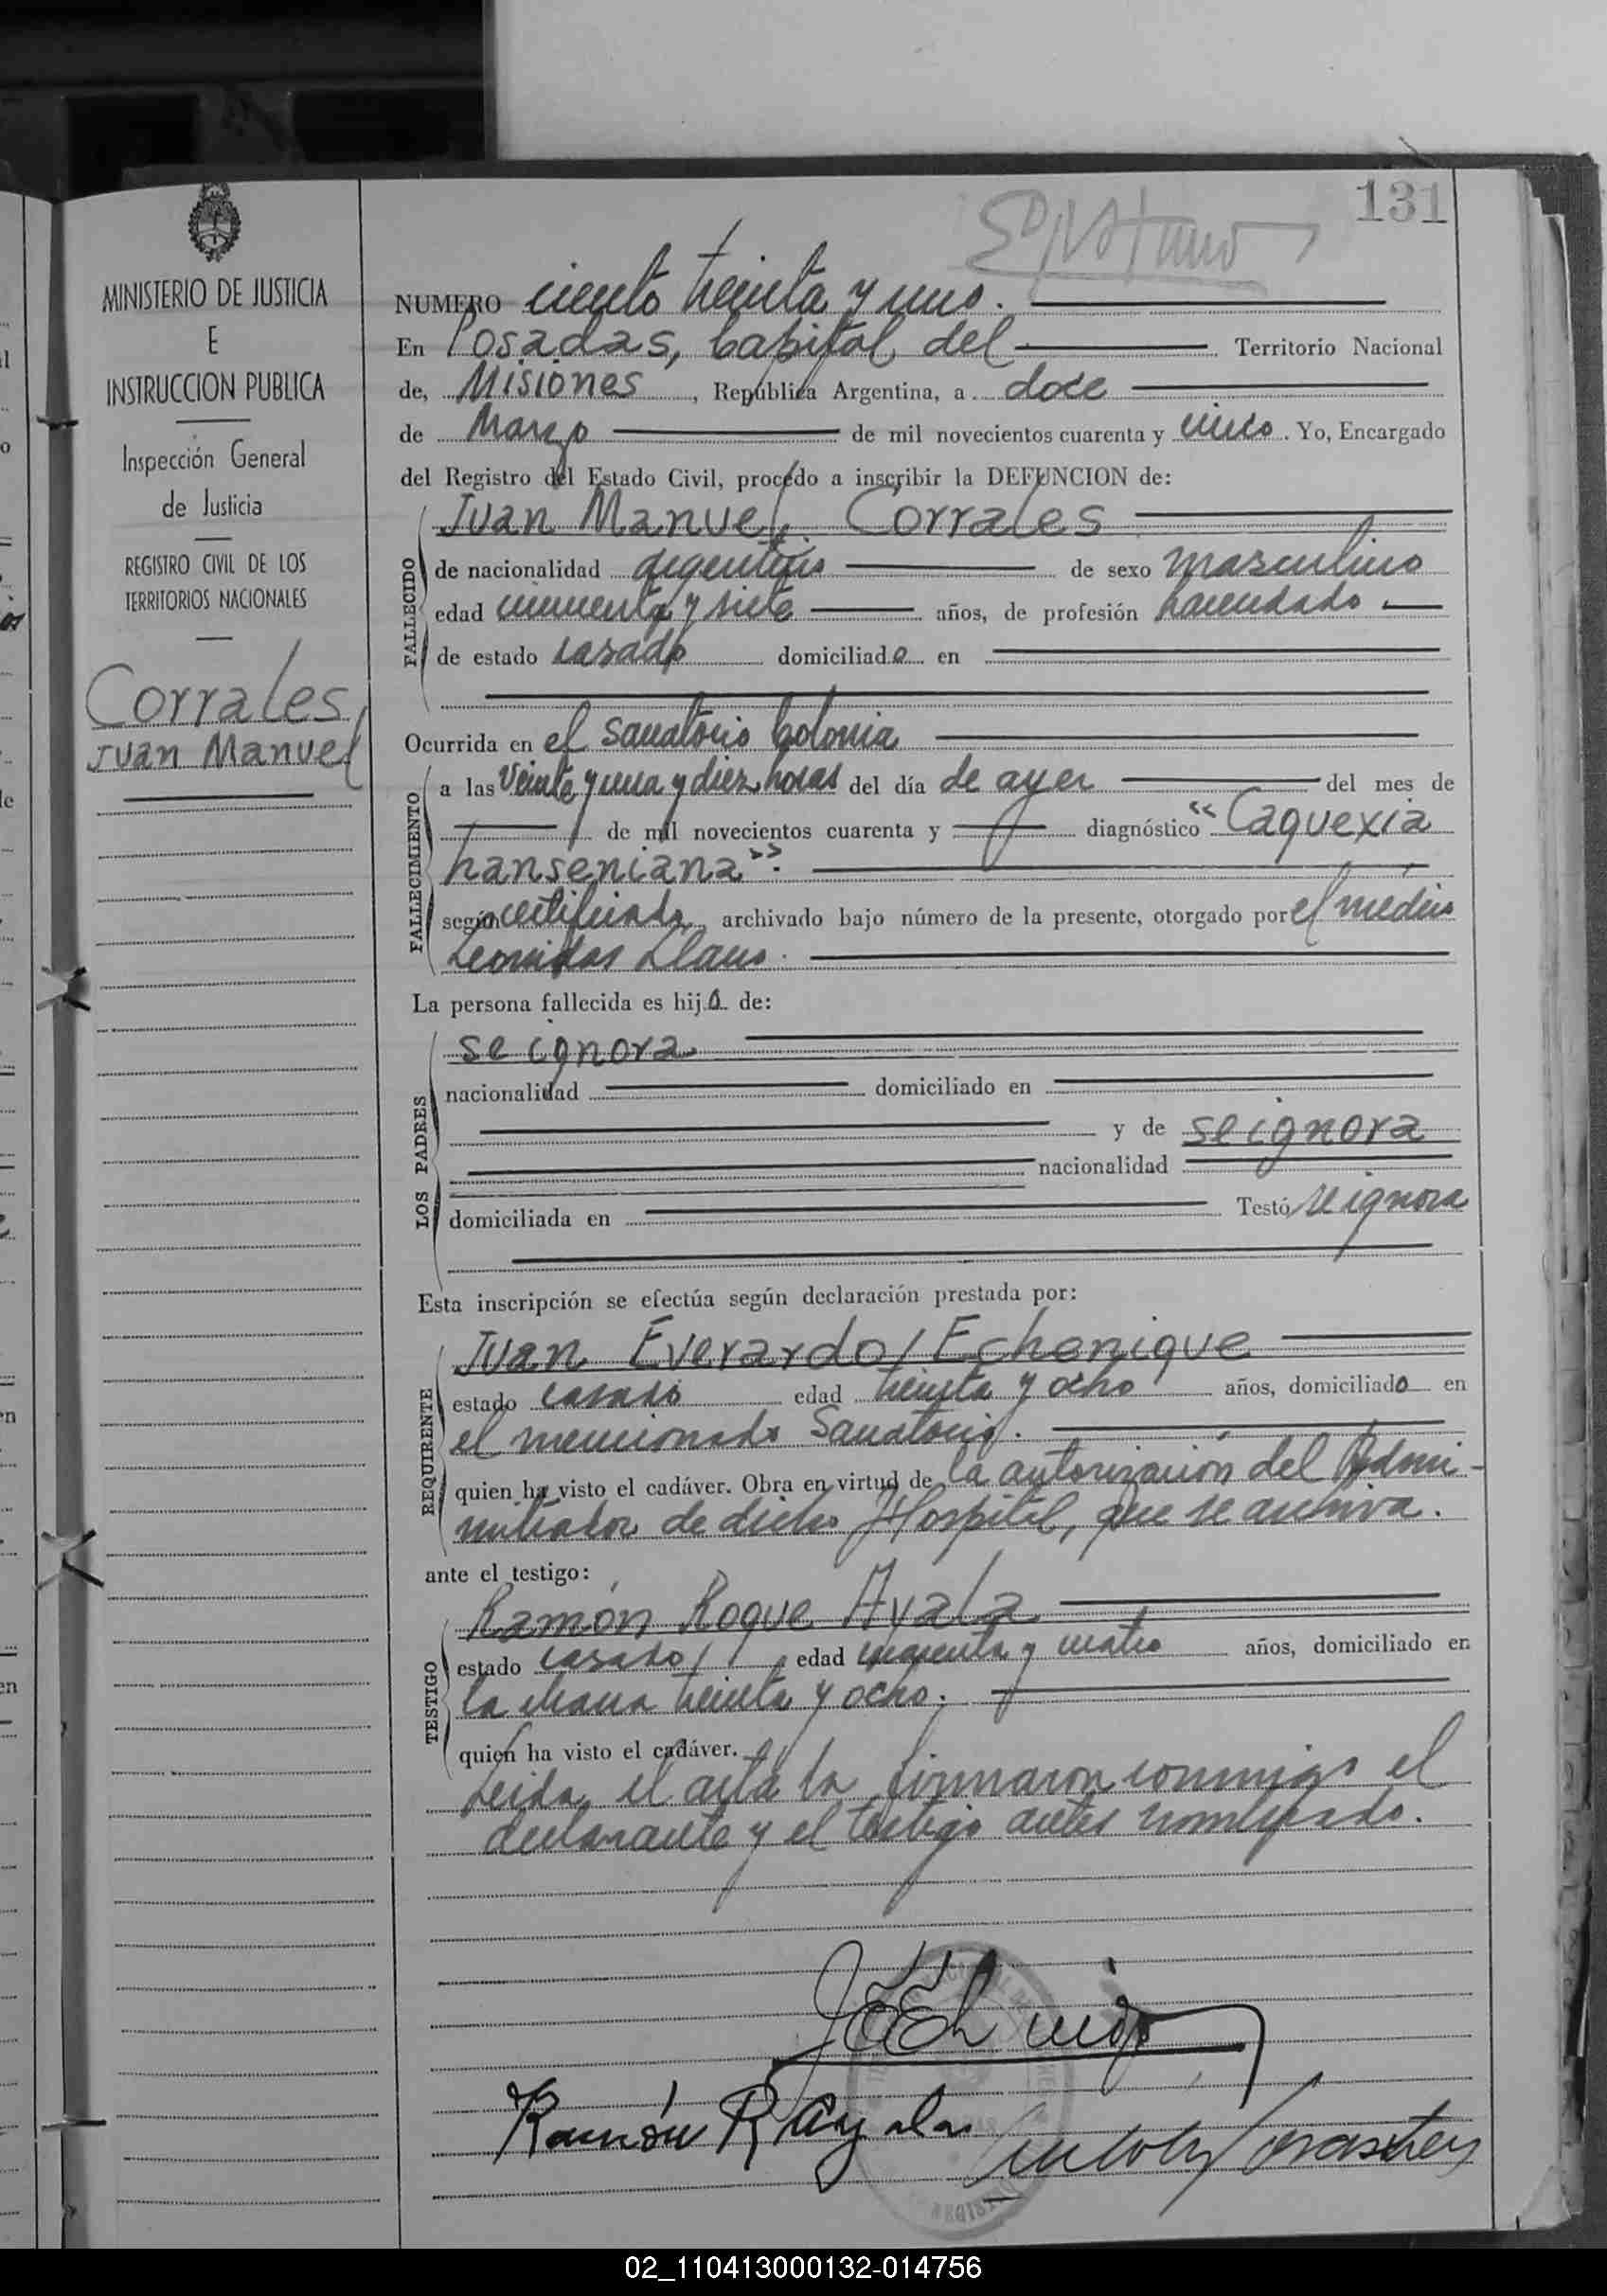 131
MINISTERIO DE JUSTICIA
E
INSTRUCCION PUBLICA
Inspección General
de Justicia
REGISTRO CIVIL DE LOS
TERRITORIOS NACIONALES
Corrales
Juan Manuel
NUMERO ciento treinta y uno.
En Posadas, Capital del Territorio Nacional
de, Misiones, República Argentina, a doce
de Marzo de mil novecientos cuarenta y cinco. Yo, Encargado
del Registro del Estado Civil, procedo a inscribir la DEFUNCION de:
FALLECIDO
Juan Manuel Corrales
de nacionalidad argentino de sexo masculino
edad cincuenta y siete años, de profesión hacendado
de estado casado domiciliado en
Ocurrida en el Sanatorio Colonia
FALLECIMIENTO
a las veinte y una y diez horas del día de ayer del mes de
de mil novecientos cuarenta y diagnóstico "Caquexia
hanseniana".
según certificado archivado bajo número de la presente, otorgado por el médico
Leonidas Llano.
La persona fallecida es hijo de:
LOS PADRES
se ignora
nacionalidad domiciliado en
y de se ignora
nacionalidad
domiciliada en Testó se ignora
Esta inscripción se efectúa según declaración prestada por:
REQUIRENTE
Juan Everardo Echenique
estado casado edad treinta y ocho años, domiciliado en
el mencionado Sanatorio.
quien ha visto el cadáver. Obra en virtud de la autorización del Admi-
nistrador de dicho Hospital, que se archiva.
ante el testigo:
TESTIGO
Ramón Roque Ayala
estado casado edad y cuatro años, domiciliado en
la chacra treinta y ocho.
quien ha visto el cadáver.
Leida el acta la firmaron conmigo el
declarante y el testigo antes nombrado.
Ramón R Ayala
02_110413000132-014756